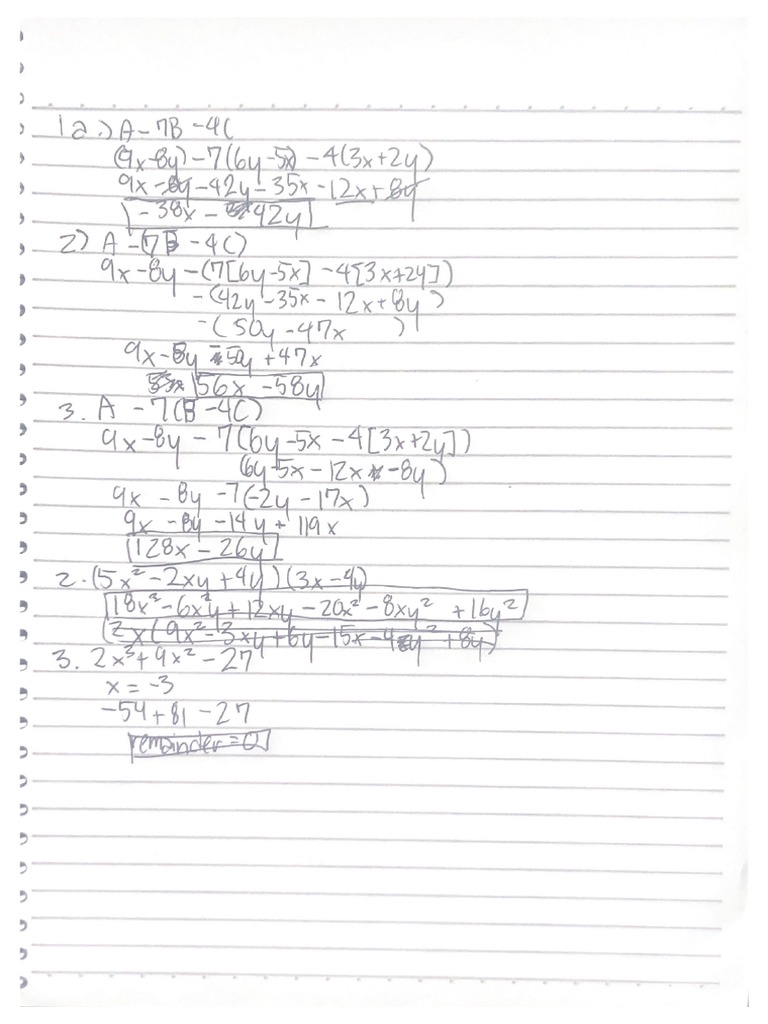 1a.) A - 7B - 4C
(9x-8y) - 7(6y-5x) - 4(3x+2y)
9x - 8y - 42y - 35x - 12x + 8y
-38x - 42y
2) A - (7B - 4C)
9x - 8y - (7[6y-5x] - 4[3x+2y])
- (42y - 35x - 12x + 8y)
- (50y - 47x)
9x - 8y - 50y + 47x
56x - 58y
3. A - 7(B - 4C)
9x - 8y - 7(6y - 5x - 4[3x+2y])
(6y - 5x - 12x - 8y)
9x - 8y - 7(-2y - 17x)
9x - 8y - 14y + 119x
128x - 26y
2. (5x² - 2xy + 4y)(3x - 4y)
18x³ - 6x²y + 12xy - 20x² - 8xy² + 16y²
2x(9x² - 3xy + 6y - 15x - 4y² + 8y)
3. 2x³ + 9x² - 27
x = -3
-54 + 81 - 27
remainder = 0